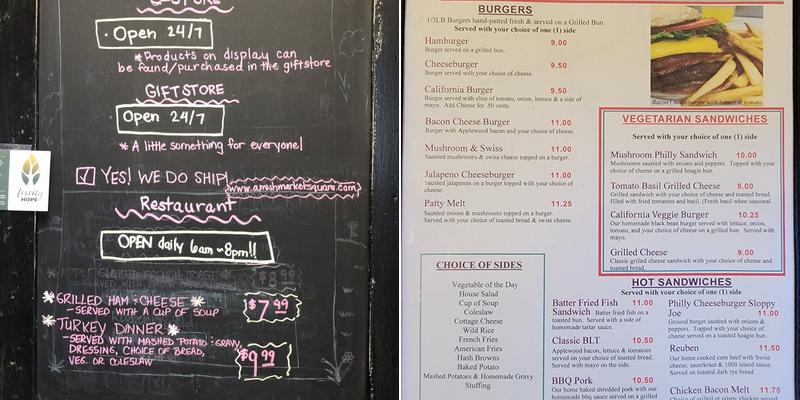 Open 24/7
*Products on display can
be found/purchased in the giftstore
GIFTSTORE
Open 24/7
*A little something for everyone!
YES! WE DO SHIP!
www.amishmarketsquare.com
Restaurant
OPEN daily 6am-8pm!!
GRILLED HAM & CHEESE
- SERVED WITH A CUP OF SOUP
$7.99
TURKEY DINNER
- SERVED WITH MASHED POTATO & GRAVY,
DRESSING, CHOICE OF BREAD,
VEG. OR COLESLAW
$9.99
HOPE
BURGERS
1/3LB Burgers hand-patted fresh & served on a Grilled Bun
Served with your choice of one (1) side
Hamburger 9.00
Burger served on a grilled bun.
Cheeseburger 9.50
Burger served with your choice of cheese.
California Burger 9.50
Burger served with slice of tomato, onion, lettuce & a side of
mayo. Add Cheese for .50 cents.
Bacon Cheese Burger 11.00
Burger with Applewood bacon and your choice of cheese.
Mushroom & Swiss 11.00
Sautéed mushrooms & swiss cheese topped on a burger.
Jalapeno Cheeseburger 11.00
Sautéed jalapenos on a burger topped with your choice of
cheese.
Patty Melt 11.25
Sautéed onions & mushrooms topped on a burger.
Served with your choice of toasted bread & swiss cheese.
Bacon Cheeseburger with lettuce & tomato
VEGETARIAN SANDWICHES
Served with your choice of one (1) side
Mushroom Philly Sandwich 10.00
Mushrooms sautéed with onions and peppers. Topped with
your choice of cheese on a grilled hoagie bun.
Tomato Basil Grilled Cheese 9.00
Grilled sandwich with your choice of cheese and toasted bread,
filled with fried tomatoes and basil. (Fresh basil when seasonal
California Veggie Burger 10.25
Our homemade black bean burger served with lettuce, onion,
tomato, and your choice of cheese on a grilled bun. Served with
mayo.
Grilled Cheese 9.00
Classic grilled cheese sandwich with your choice of cheese and
toasted bread.
CHOICE OF SIDES
Vegetable of the Day
House Salad
Cup of Soup
Coleslaw
Cottage Cheese
Wild Rice
French Fries
American Fries
Hash Browns
Baked Potato
Mashed Potatoes & Homemade Gravy
Stuffing
HOT SANDWICHES
Served with your choice of one (1) side
Batter Fried Fish 11.00
Sandwich Batter fried fish on a
toasted bun. Served with a side of
homemade tartar sauce.
Classic BLT 10.50
Applewood bacon, lettuce & tomatoes
served on your choice of toasted bread.
Served with mayo on the side.
BBQ Pork 10.50
Our home baked shredded pork with our
homemade bbq sauce served on a grilled
Philly Cheeseburger Sloppy
Joe 11.00
Ground burger sautéed with onions &
peppers. Topped with your choice of
cheese served on a toasted hoagie bun.
Reuben 11.50
Our home cooked corn beef with Swiss
cheese, sauerkraut & 1000 island sauce.
Served on toasted dark rye bread.
Chicken Bacon Melt 11.75
Choice of grilled or crispy chicken served